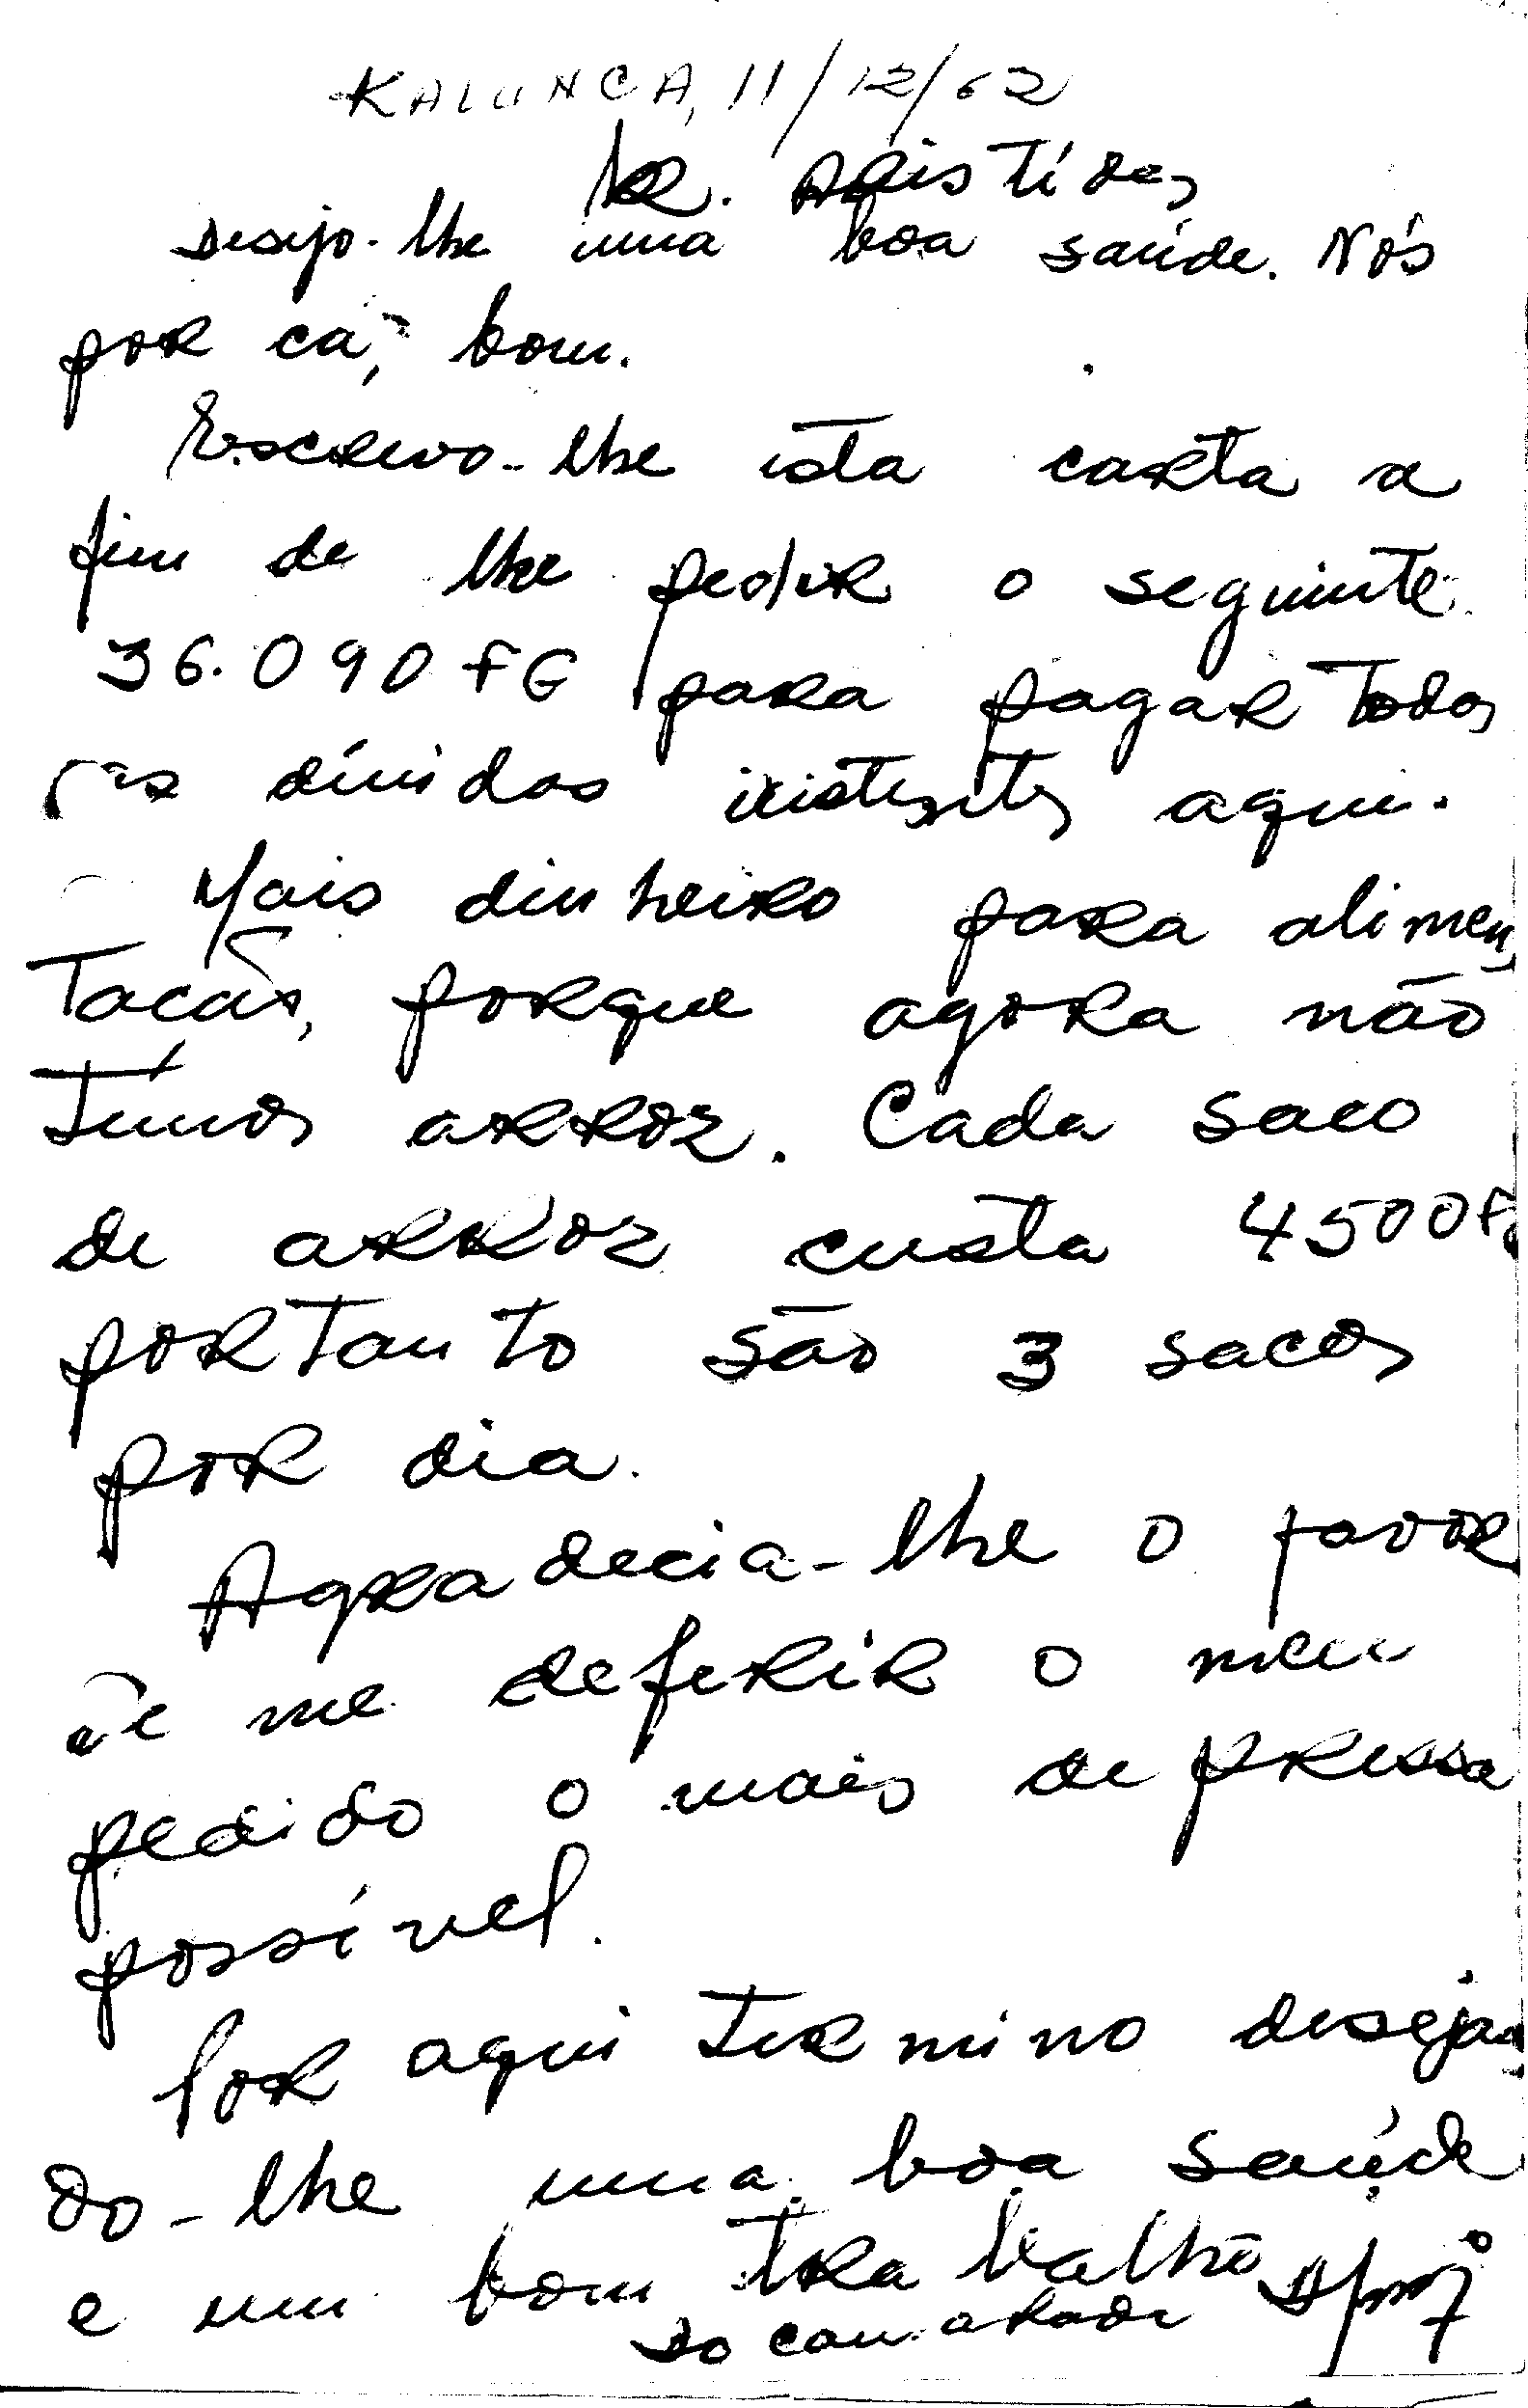 KALUNCA, 11/12/62
Kr. Aristides
Desejo-lhe uma boa saúde. Nós
por cá, bom.
Escrevo-lhe esta carta a
fim de lhe pedir o seguinte
36.090 FG para pagar todas
as dívidas existentes aqui.
Mais dinheiro para alimen
tacão, porque agora não
têmos arroz. Cada saco
de arroz custa 4500 F
portanto são 3 sacos
por dia.
Agradecia-lhe o favor
de me deferir o meu
pedido o mais depressa
possível.
Por aqui termino desejan
do-lhe uma boa saúde
e um bom trabalho
do camarada